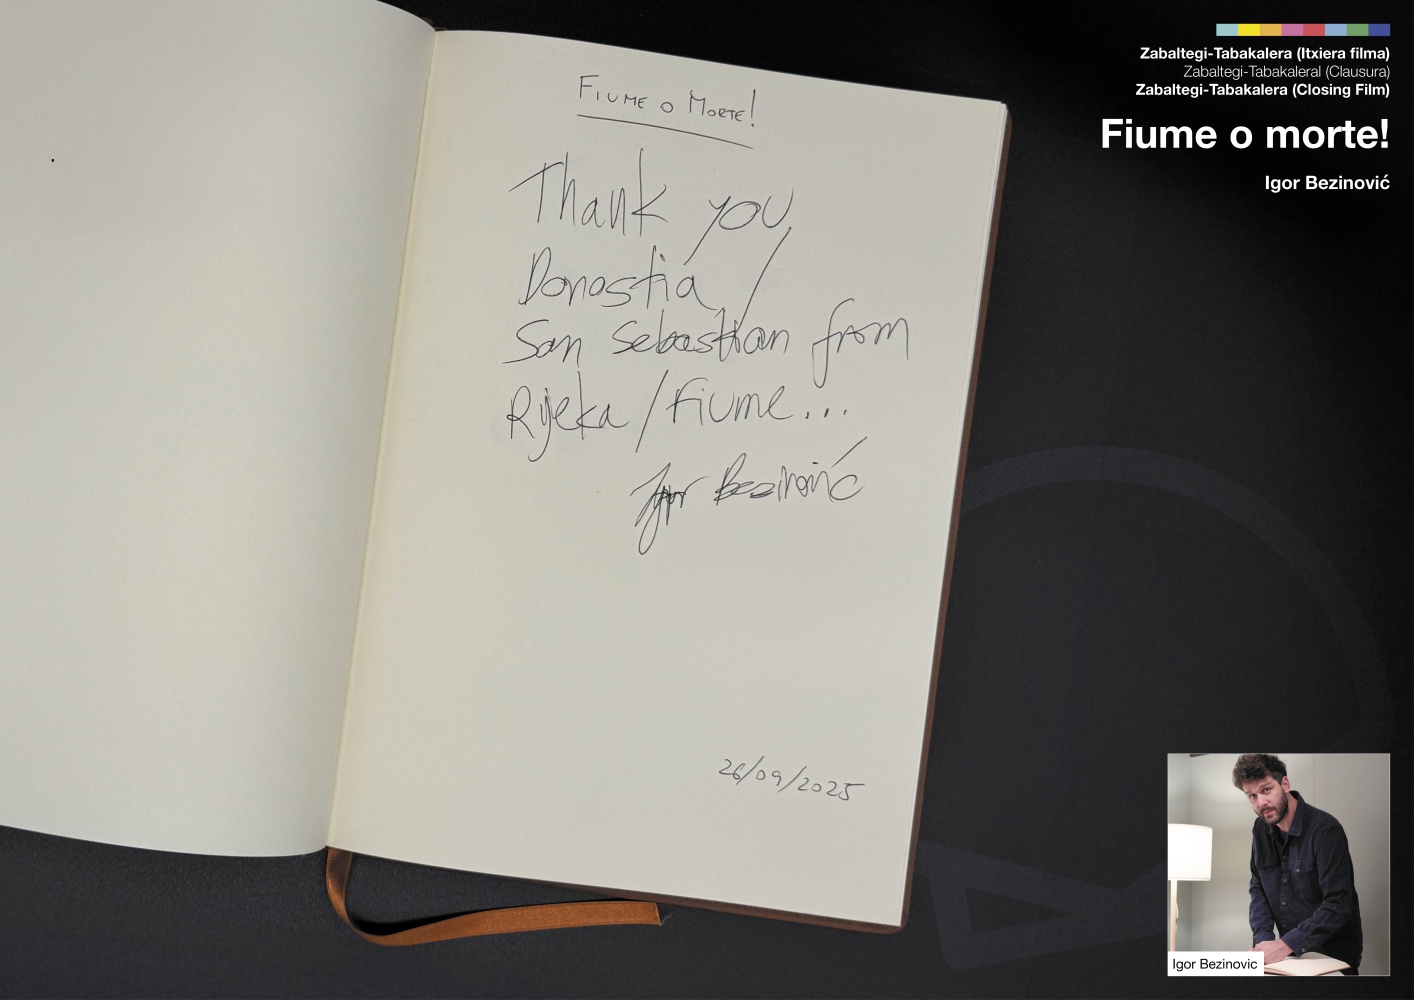 Fiume o Morte!
Thank you
Donostia /
San Sebastian from
Rijeka / Fiume...
Igor Bezinović
26/09/2025
Zabaltegi-Tabakalera (Itxiera filma)
Zabaltegi-Tabakaleral (Clausura)
Zabaltegi-Tabakalera (Closing Film)
Fiume o morte!
Igor Bezinović
Igor Bezinovic